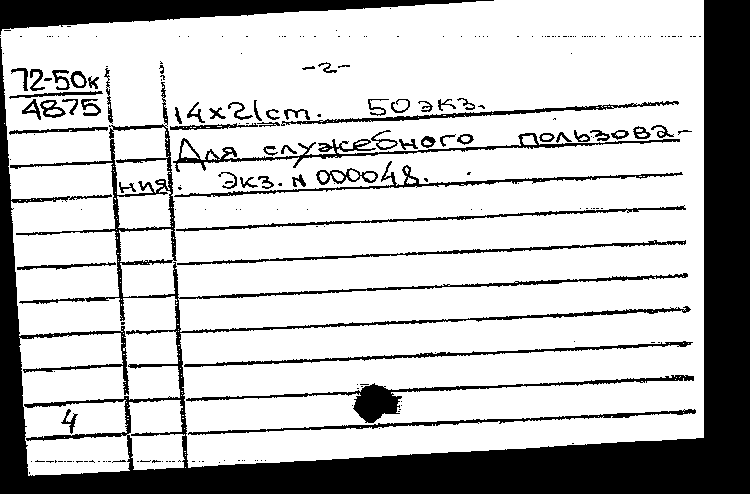 -2-
72-50к
4875 14x21cm. 50 экз.
Для служебного пользова-
ния. Экз. N 000048.
4